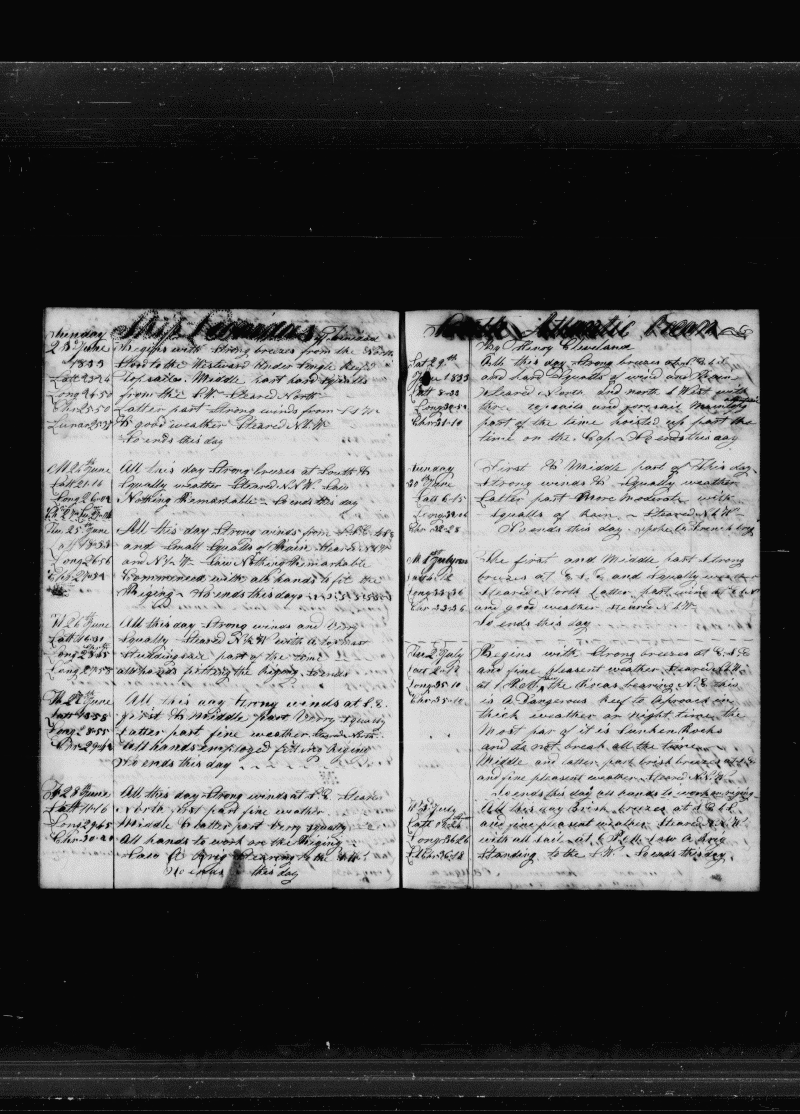 Ship
Sunday
23d June
1833
Latt 23-24
Long 26-50
Chr 25-50
Lunar
Begins with Strong breezes from the South
to the Westward Under Single Reef'd
topsailes. Middle part hard Squalls
from the SW Steared North
Latter part Strong winds from SSW
& good weather Steared N.b.W
So ends this day
M 24th June
Latt 21-16
Long 26-02
All this day Strong brezes at South &
Squally weather Steared N.N.W. Saw
Nothing Remarkable - So ends this day
Tue 25th June
Latt 18-33
Long 26-56
Chr 27-34
All this day Strong winds from
and Small Squalls of Rain Steared
and N.b.W - Saw Nothing Remarkable
Commenced with all hands to fit the
Riging - So ends this day
W 26th June
Latt 16-31
Long
Long 27-58
All this day Strong winds and Very
Squally Steared N.b.W with a topmast
Studdingsail part of the time
all hands fitting the Riging So ends
Th 27th June
Latt 13-58
Long 28-55
Chr 29-42
All this day Strong winds at S.E.
First & Middle part Verry Squally
Latter part fine weather Steared North
All hands employed fitting Riging
So ends this day
F 28th June
Latt 11-16
Long 29-65
Chr 30-20
All this day Strong winds at S.E Steared
North first part fine weather
Middle & latter part Very Squally
All hands to work on the Riging
Saw A Brig Stearing to the SW
So ends this day
South Atlantic Ocean
By Henry Cleveland
Sat 29th
June 1833
Latt 8-33
Long 30-52
Chr 31-10
All this day Strong brezes at
and hard Squalls of wind and Rain
Steared North and north b West with
three topsails and foresail Maintop
part of the time hoisted up part the
time on the Cap - So ends this day
Sunday
30th June
Latt 6-15
Long
Chr 32-28
First & Middle part of this day
Strong winds & Squally weather
Latter part More Moderate with
Squalls of Rain - Steared N.b.W
So ends this day - spoke to
M 1st July
Long 33-36
Chr 33-36
The first and Middle part Strong
brezes at E.S.E and Squally weather
Steared North Latter part wind at
and good weather Steared N.b.W
So ends this day
Tue 2d July
Latt
Long 35-10
Chr 35-10
Begins with Strong brezes at E.S.E
and fine pleasent weather Steared
at 5 P.M. the Rocas bearing N.E this
is A Dangerous Reef to Aproach in
thick weather or night time the
Most par of it is Sunken Rocks
and do not break all the time
Middle and latter part brisk brezes at
and fine pleasent weather Steared N.N.W
So ends this day all hands to work on riging
W 3d July
Latt
Long 36-26
Chr
All this day Brisk brezes at S.E.b.E
and fine pleasent weather Steared
with all sail at 6 P.M. Saw A Brig
Standing to the S.W. So ends this day